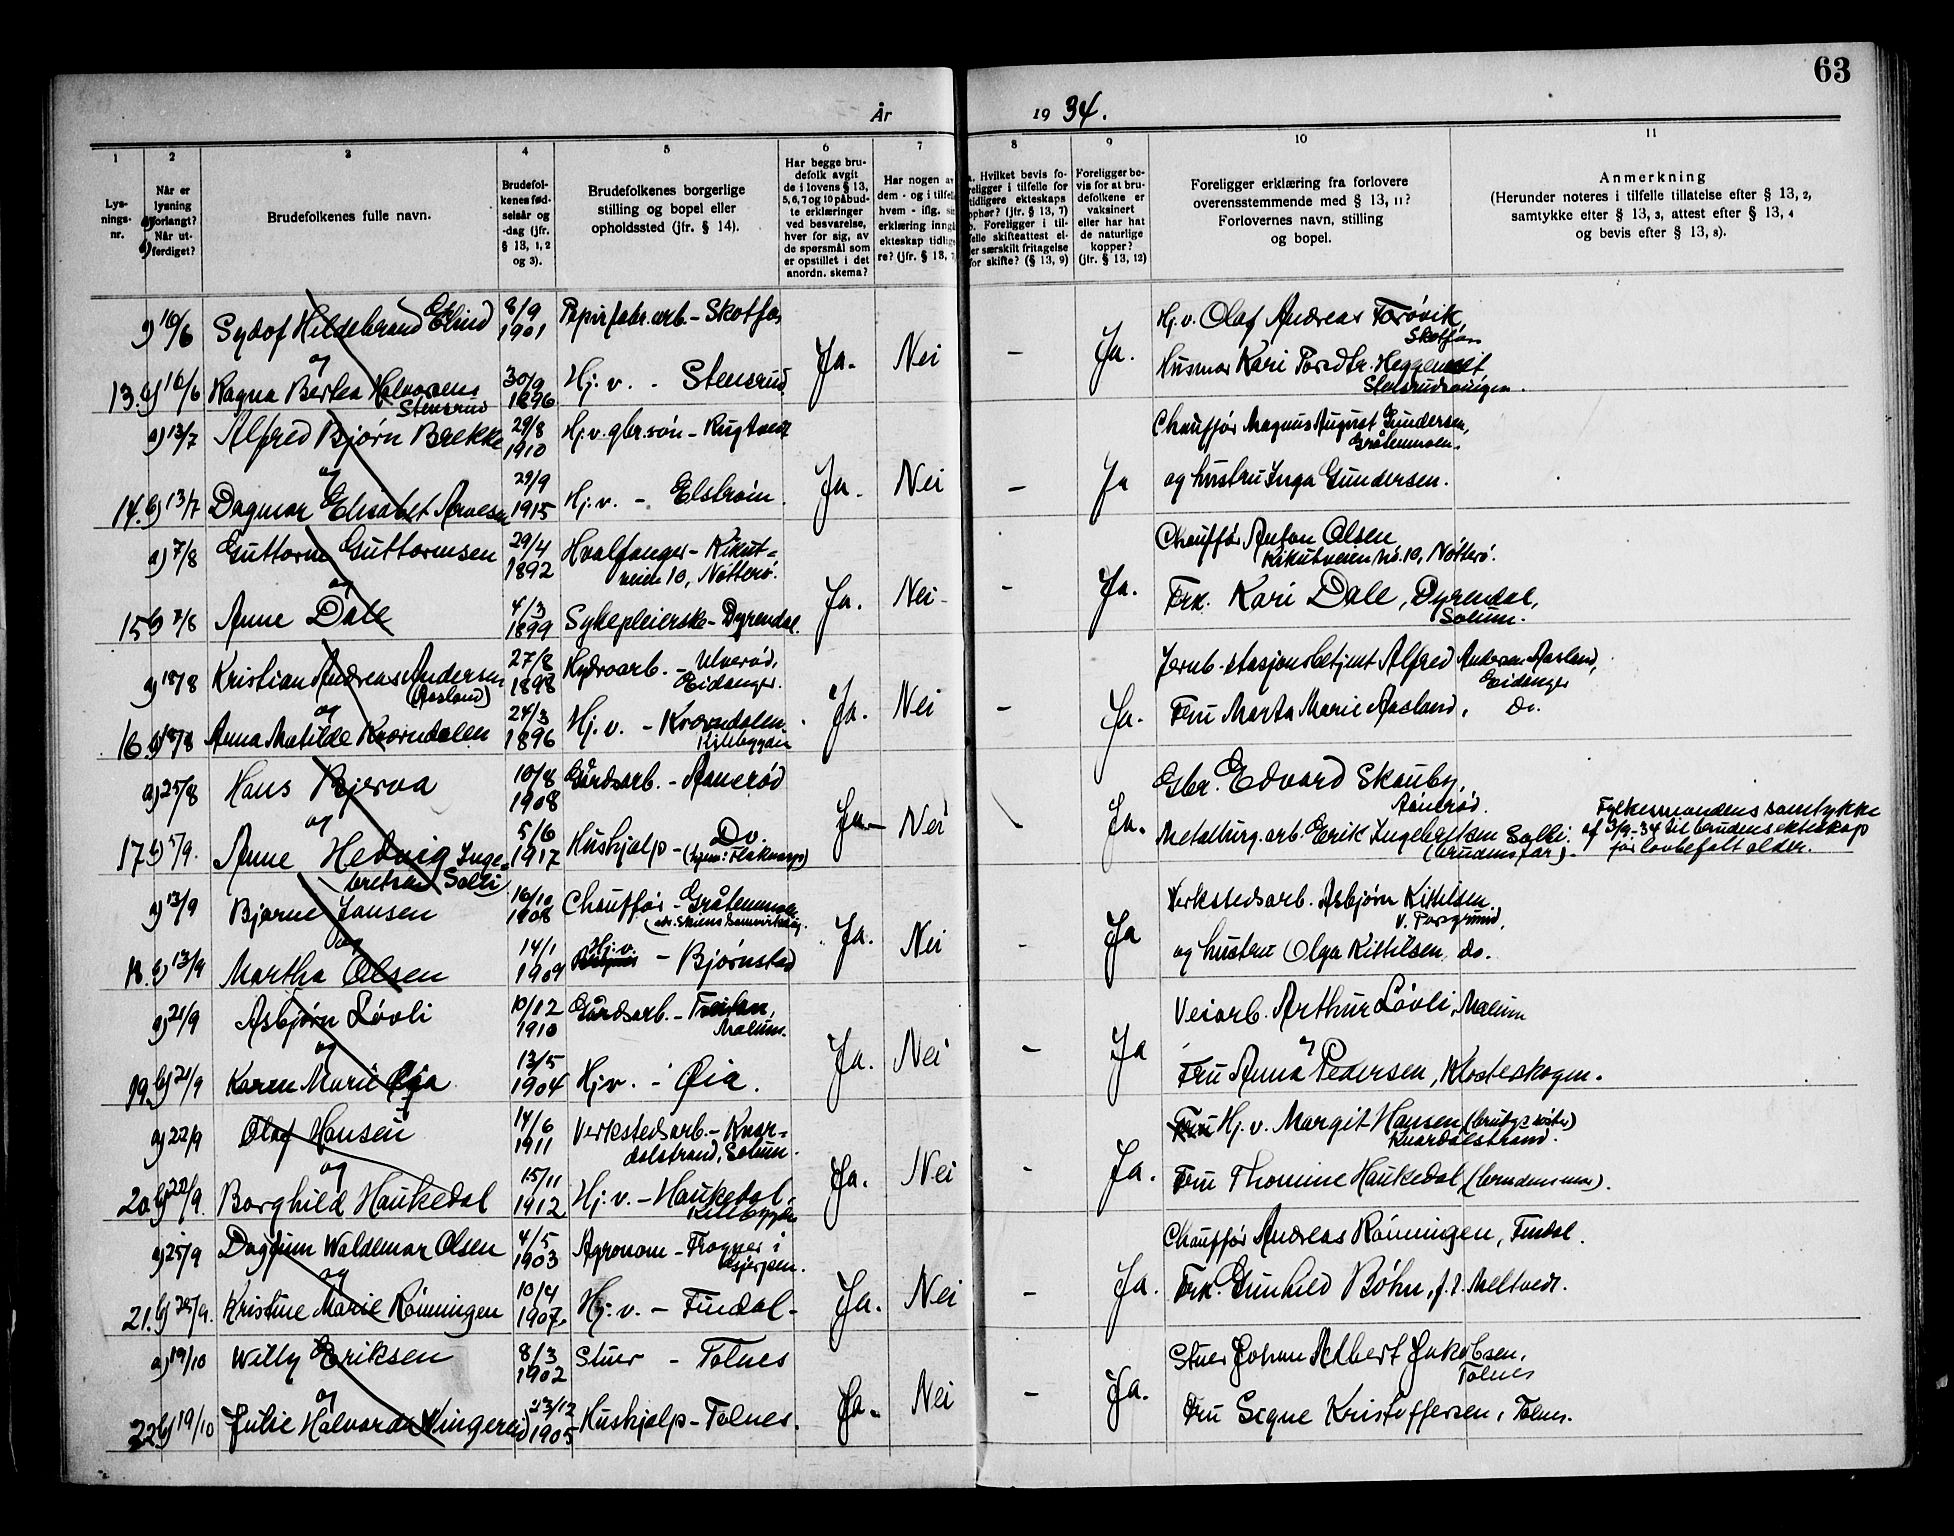 63
År 1934.
1 2 3 4 5 6 7 8 9 10 11
Lys-
nings-
nr.
Når er
lysning
a) forlangt?
Når ut-
b) ferdiget?
Brudefolkenes fulle navn.
Brudefol-
kenes fød-
selsår og
-dag (jfr.
§ 13, 1, 2
og 3).
Brudefolkenes borgerlige
stilling og bopel eller
opholdssted (jfr. § 14).
Har begge bru-
defolk avgit
de i lovens § 13,
5, 6, 7 og 10 påbud-
te erklæringer
ved besvarelse,
hver for sig, av
de spørsmål som
er opstillet i det
anordn. skema?
Har nogen av
dem - og i tilfelle
hvem - iflg. sin
erklæring inngå
ekteskap tidlige-
re? (jfr. § 13, 7
a. Hvilket bevis fo-
religger i tilfelle for
tidligere ekteskaps
ophør? (jfr. § 13, 7)
b. Foreligger i til-
felle skifteattest el-
ler særskilt fritagelse
for skifte? (§ 13, 9)
Foreligger be-
vis for at bru-
defolkene er
vaksinert
eller har hat
de naturlige
kopper?
(jfr. § 13, 12)
Foreligger erklæring fra forlovere
overensstemmende med § 13, 11?
Forlovernes navn, stilling
og bopel.
Anmerkning
(Herunder noteres i tilfelle tillatelse efter § 13, 2,
samtykke efter § 13, 3, attest efter § 13, 4
og bevis efter § 13, 8).
a) 16/6 Sydof Hildebrand 8/9 1901 Papirfabr.arb. - Skotfos Hj.v. Olaf Andreas Torøvik,
Skotfos
og Ja. Nei - Ja.
13. b) 16/6 Ragna Bertea Halvorsen 30/9 1896 Hj.v. - Stensrud Husmor Kari
Stensrud
a) 13/7 Alfred Bjørn Brekke 29/8 1910 Hj.v. gbr.søn - Rugtvedt Chauffør Magnus August Gundersen,
Gråtenmoen.
og Ja. Nei - Ja
14. b) 13/7 Dagmar Elisabet Arvesen 29/9 1915 Hj.v. - Elstrøm og hustru Inga Gundersen.
a) 7/8 Guttorm Guttormsen 29/4 1892 Hvalfanger - Kikut- Chauffør Anton Olsen
veien 10, Nøtterø. Kikutveien no. 10, Nøtterø.
og Ja. Nei - Ja.
15 b) 7/8 Anne Dale 4/3 1899 Sykepleierske - Dyrendal. Frk. Kari Dale, Dyrendal,
Solum.
a) 18/8 Kristian Andreas Andersen 27/8 1898 Hydroarb. - Ulverød, Jernb.stasjonsbetjent Alfred Andersen Aasland,
(Aasland) Eidanger. Eidanger
og Ja. Nei - Ja.
16. b) 18/8 Anna Matilde Kvorndalen 24/3 1896 Hj.v. - Kvorndalen Fru Marta Marie Aasland, Do.
Kilebygden
a) 25/8 Hans Bjerva 10/8 1908 Gårdsarb. - Aanerød Gbr. Edvard Skauby,
Aanerød.
og Ja - Nei - Ja.
17 b) 5/9. Anne Hedvig Inge- 5/6 1917 Hushjelp - Do. Metallurg.arb. Erik Ingebretsen Solli. Fylkesmandens samtykke
bretsen Solli (brudens far). af 3/9-34 til brudens ekteskap
før lovbefalt alder.
a) 13/9 Bjarne Jansen 16/10 1908 Chauffør - Gråtenmoen Verkstedsarb. Asbjørn Kittilsen.
V. Porsgrund,
og Ja. Nei - Ja
18. b) 13/9 Martha Olsen 14/1 1909 Hj.v. - Bjørnstad og hustru Olga Kittilsen, do.
a) 21/9 Asbjørn Løvli 10/12 1910 Gårdsarb. - Veiarb. Arthur Løvli, Mælum
Mælum.
og Ja. Nei - Ja
19. b) 21/9 Karen Marie Øia 13/5 1904 Hj.v. - Øia. Fru Anna Pedersen, Klosterskogen.
a) 22/9 Olaf Hansen 14/6 1911 Verkstedsarb. - Knar- Fru Hj.v. Margit Hansen (brudg. søster)
dalstrand, Solum. Knardalstrand.
og Ja. Nei - Ja.
20. b) 22/9. Borghild Haukedal 15/11 1912 Hj.v. - Haukedal, Fru Thomine Haukedal (brudens mor).
Kilebygden
a) 25/9 Dagfinn Waldemar Olsen 4/5 1903 Agronom - Frogner i Chauffør Andreas Rønningen, Findal.
Gjerpen.
og Ja. Nei - Ja.
21. b) 25/9. Kristine Marie Rønningen 10/4 1907. Hj.v. - Findal - Frk. Gunhild Bøhn, f. t. Meltvedt.
a) 19/10 Willy Eriksen 8/3 1902 Stuer - Tolnes Stuer Johan Albert Jakobsen,
Tolnes
og Ja. Nei - Ja.
22 b) 19/10 Julie Halvorda Vingereid 23/12 1905 Hushjelp - Tolnes. Fru Signe Kristoffersen, Tolnes.